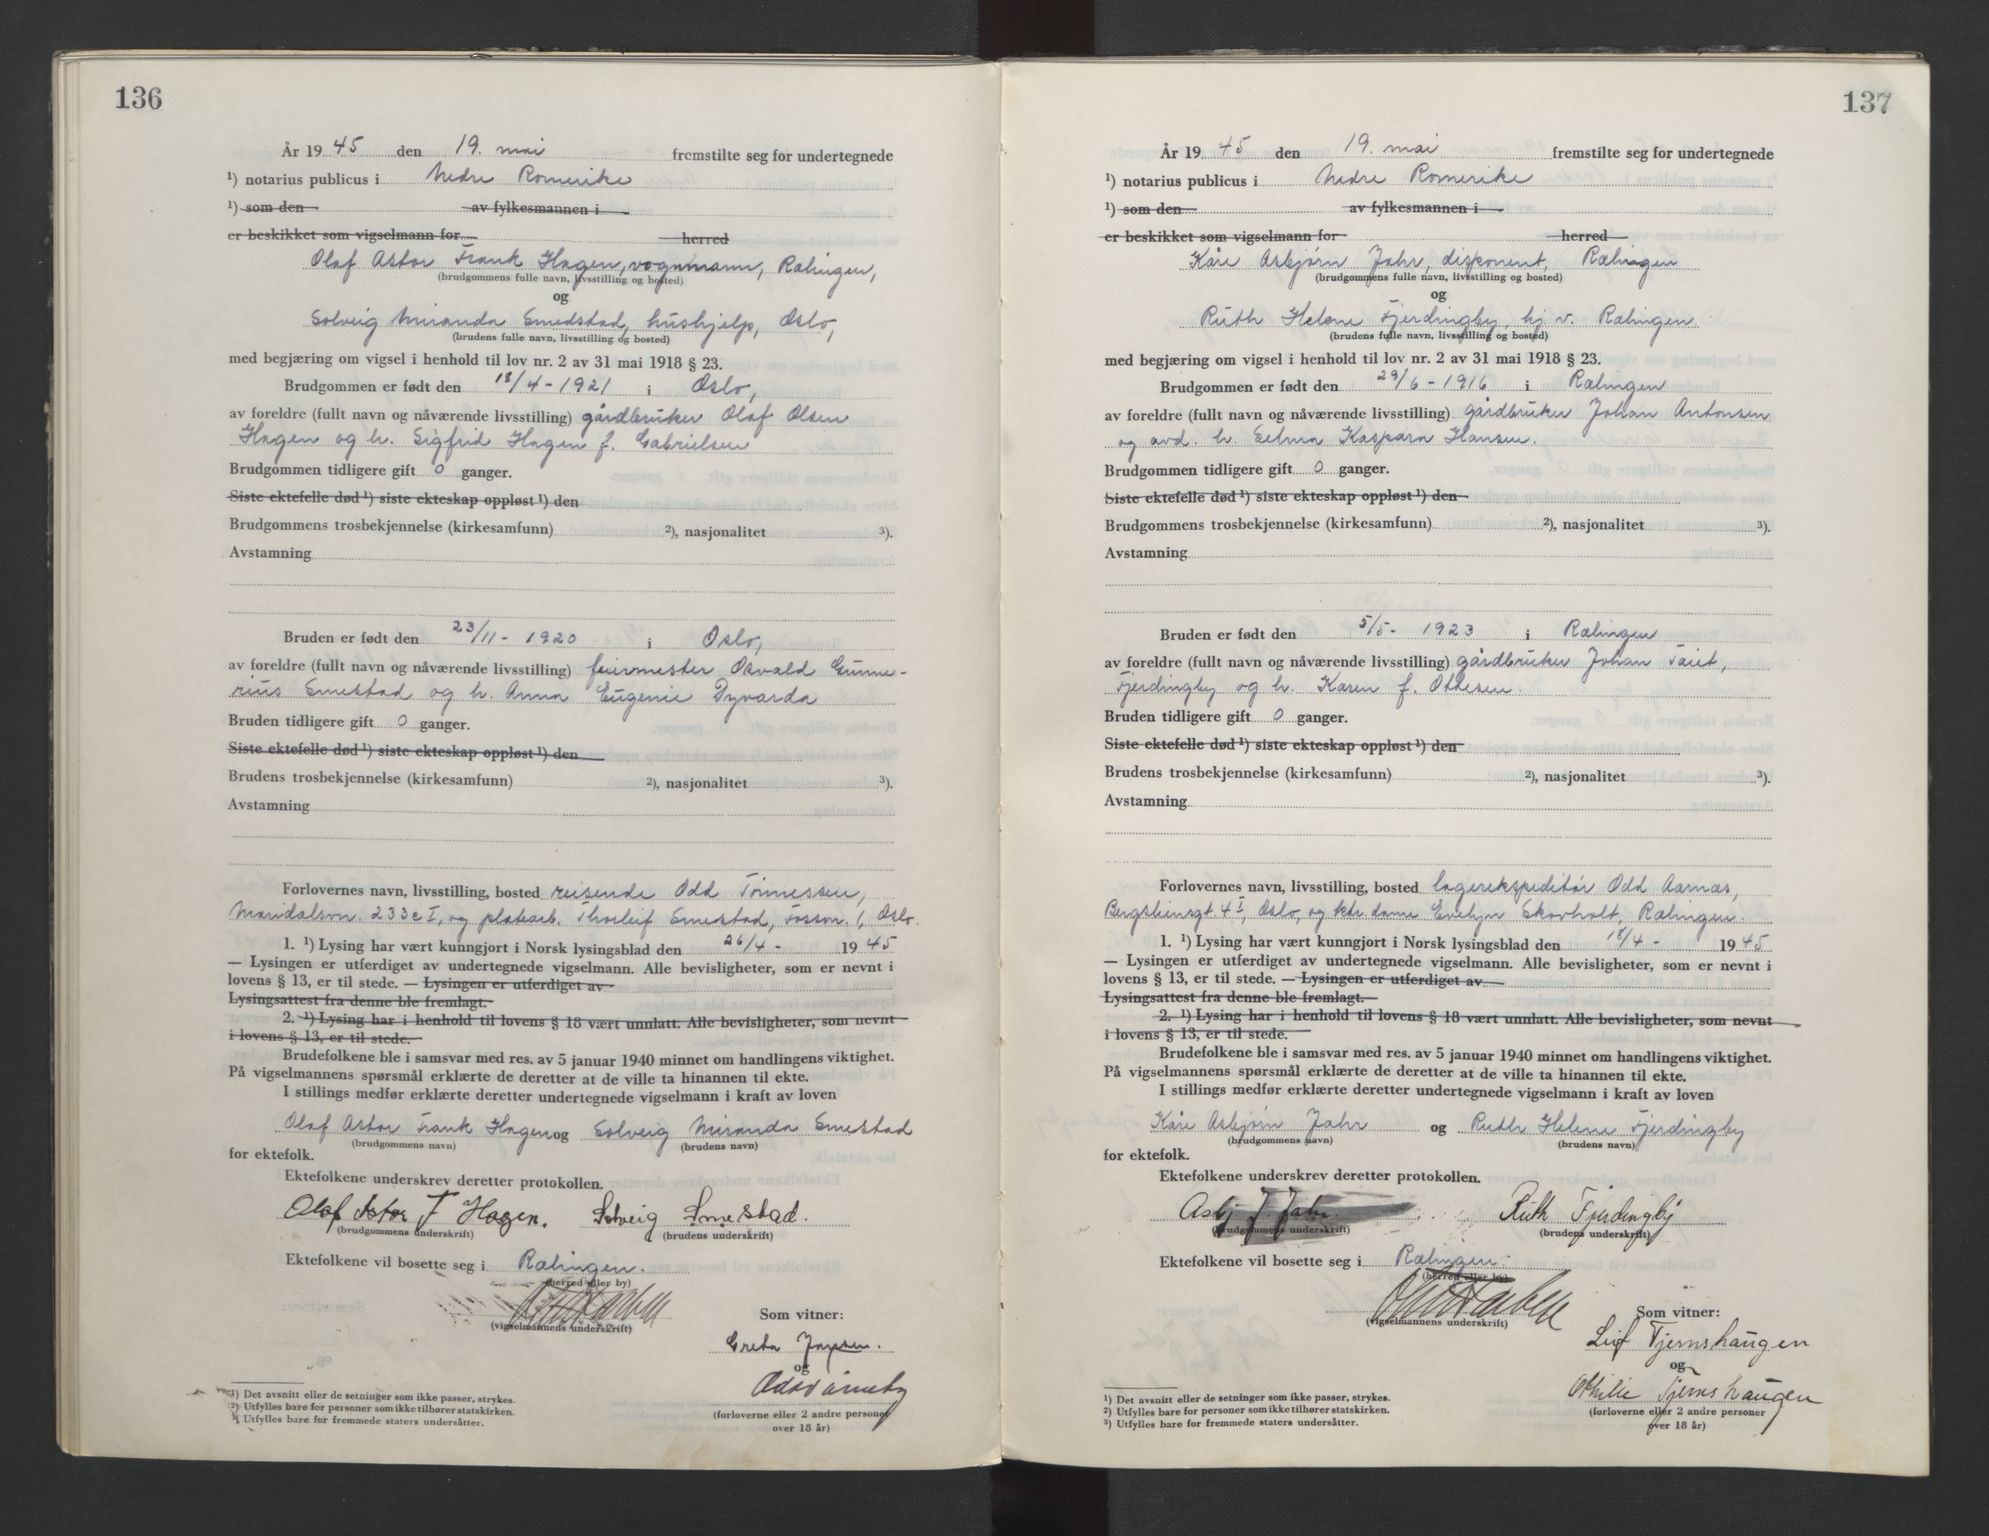 136
År 19 45 den 19. mai fremstilte seg for undertegnede
¹) notarius publicus i Nedre Romerike
¹) som den av fylkesmannen i
er beskikket som vigselmann for herred
Olaf Astor Frank Hagen, vognmann, Rælingen,
(brudgommens fulle navn, livsstilling og bosted)
og
Solveig Miranda Smedstad, hushjelp, Oslo,
(brudens fulle navn, livsstilling og bosted)
med begjæring om vigsel i henhold til lov nr. 2 av 31 mai 1918 § 23.
Brudgommen er født den 18/4 - 1921 i Oslo,
av foreldre (fullt navn og nåværende livsstilling) gårdbruker Olaf Olsen
Hagen og h. Sigfrid Hagen f. Gabrielsen
Brudgommen tidligere gift 0 ganger.
Siste ektefelle død ¹) siste ekteskap oppløst ¹) den
Brudgommens trosbekjennelse (kirkesamfunn) ²), nasjonalitet ³).
Avstamning
Bruden er født den 23/11 - 1920 i Oslo,
av foreldre (fullt navn og nåværende livsstilling) feiermester Osvald Gunne-
rius Smestad og h. Anna Eugenie Dyvarda
Bruden tidligere gift 0 ganger.
Siste ektefelle død ¹) siste ekteskap oppløst ¹) den
Brudens trosbekjennelse (kirkesamfunn) ²), nasjonalitet ³).
Avstamning
Forlovernes navn, livsstilling, bosted reisende Odd Tönnessen,
Maridalsvn. 233c I, og platearb. Thorleif Smestad, Fossvn. 1, Oslo.
1. ¹) Lysing har vært kunngjort i Norsk lysingsblad den 26/4 - 19 45
— Lysingen er utferdiget av undertegnede vigselmann. Alle bevisligheter, som er nevnt i
lovens § 13, er til stede. — Lysingen er utferdiget av
Lysingsattest fra denne ble fremlagt.
2. ¹) Lysing har i henhold til lovens § 18 vært unnlatt. Alle bevisligheter, som nevnt
i lovens § 13, er til stede.
Brudefolkene ble i samsvar med res. av 5 januar 1940 minnet om handlingens viktighet.
På vigselmannens spørsmål erklærte de deretter at de ville ta hinannen til ekte.
I stillings medfør erklærte deretter undertegnede vigselmann i kraft av loven
Olaf Astor Frank Hagen og Solveig Miranda Smestad
(brudgommens navn) (brudens navn)
for ektefolk.
Ektefolkene underskrev deretter protokollen.
Olaf Astor F Hagen. Solveig Smestad.
(brudgommens underskrift) (brudens underskrift)
Ektefolkene vil bosette seg i Rælingen.
(herred eller by)
(vigselmannens underskrift)
Som vitner:
Greta
og
(forloverne eller 2 andre personer
over 18 år)
¹) Det avsnitt eller de setninger som ikke passer, strykes.
²) Utfylles bare for personer som ikke tilhører statskirken.
³) Utfylles bare for fremmede staters undersåtter.
137
År 19 45 den 19. mai fremstilte seg for undertegnede
¹) notarius publicus i Nedre Romerike
¹) som den av fylkesmannen i
er beskikket som vigselmann for herred
Kåre Asbjørn Jahr, disponent, Rælingen
(brudgommens fulle navn, livsstilling og bosted)
og
Ruth Helene Fjerdingby, hj v. Rælingen.
(brudens fulle navn, livsstilling og bosted)
med begjæring om vigsel i henhold til lov nr. 2 av 31 mai 1918 § 23.
Brudgommen er født den 29/6 - 1916 i Rælingen
av foreldre (fullt navn og nåværende livsstilling) gårdbruker Johan Antonsen
og avd. h. Selma Kaspara Hansen.
Brudgommen tidligere gift 0 ganger.
Siste ektefelle død ¹) siste ekteskap oppløst ¹) den
Brudgommens trosbekjennelse (kirkesamfunn) ²), nasjonalitet ³).
Avstamning
Bruden er født den 5/5 - 1923 i Rælingen
av foreldre (fullt navn og nåværende livsstilling) gårdbruker Johan Taiet,
Fjerdingby og h. Karen f. Ottesen.
Bruden tidligere gift 0 ganger.
Siste ektefelle død ¹) siste ekteskap oppløst ¹) den
Brudens trosbekjennelse (kirkesamfunn) ²), nasjonalitet ³).
Avstamning
Forlovernes navn, livsstilling, bosted lagerekspeditör Odd Aarnæs,
Bergsliensgt 4 I, Oslo, og ktr. dame Evelyn Skovholt, Rælingen.
1. ¹) Lysing har vært kunngjort i Norsk lysingsblad den 18/4 - 19 45
— Lysingen er utferdiget av undertegnede vigselmann. Alle bevisligheter, som er nevnt i
lovens § 13, er til stede. — Lysingen er utferdiget av
Lysingsattest fra denne ble fremlagt.
2. ¹) Lysing har i henhold til lovens § 18 vært unnlatt. Alle bevisligheter, som nevnt
i lovens § 13, er til stede.
Brudefolkene ble i samsvar med res. av 5 januar 1940 minnet om handlingens viktighet.
På vigselmannens spørsmål erklærte de deretter at de ville ta hinannen til ekte.
I stillings medfør erklærte deretter undertegnede vigselmann i kraft av loven
Kåre Asbjørn Jahr og Ruth Helene Fjerdingby
(brudgommens navn) (brudens navn)
for ektefolk.
Ektefolkene underskrev deretter protokollen.
Asbj J. Jahr. Ruth Fjerdingby
(brudgommens underskrift) (brudens underskrift)
Ektefolkene vil bosette seg i Rælingen.
(herred eller by)
(vigselmannens underskrift)
Som vitner:
Leif Tjernshaugen
og
Othilie Tjernshaugen
(forloverne eller 2 andre personer
over 18 år)
¹) Det avsnitt eller de setninger som ikke passer, strykes.
²) Utfylles bare for personer som ikke tilhører statskirken.
³) Utfylles bare for fremmede staters undersåtter.